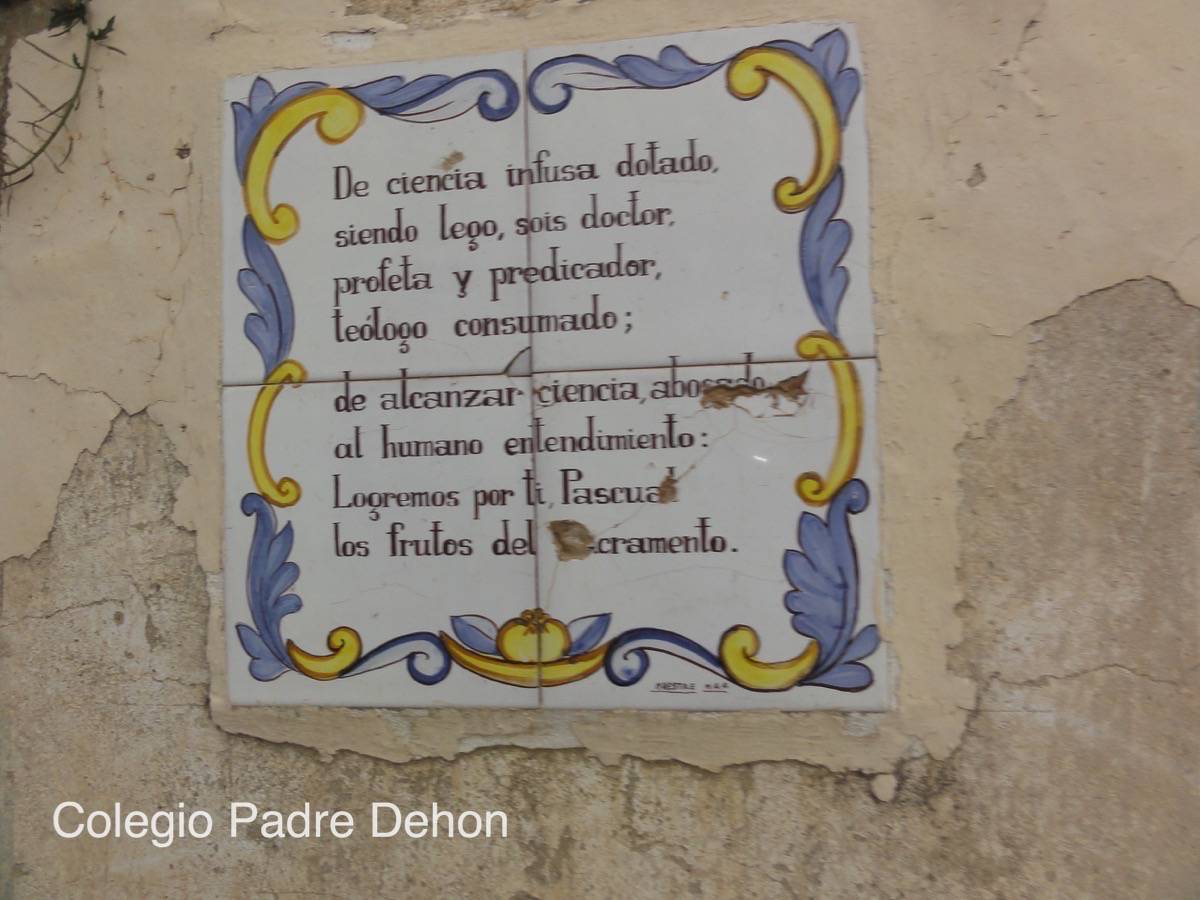 De ciencia infusa dotado,
siendo lego, sois doctor,
profeta y predicador,
teólogo consumado;
de alcanzar ciencia,
al humano entendimiento:
Logremos por ti, Pascual
los frutos del
Colegio Padre Dehon